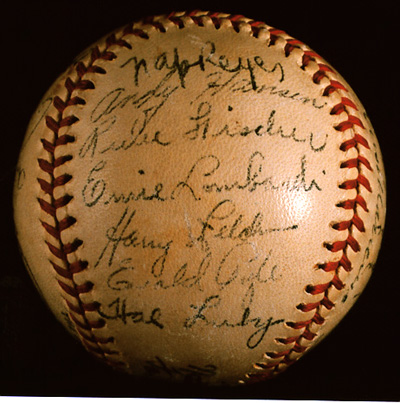 Nap Reyes
Andy Hansen
Rube Fischer
Ernie Lombardi
Harry Feldman
Ewald Pyle
Hal Luby